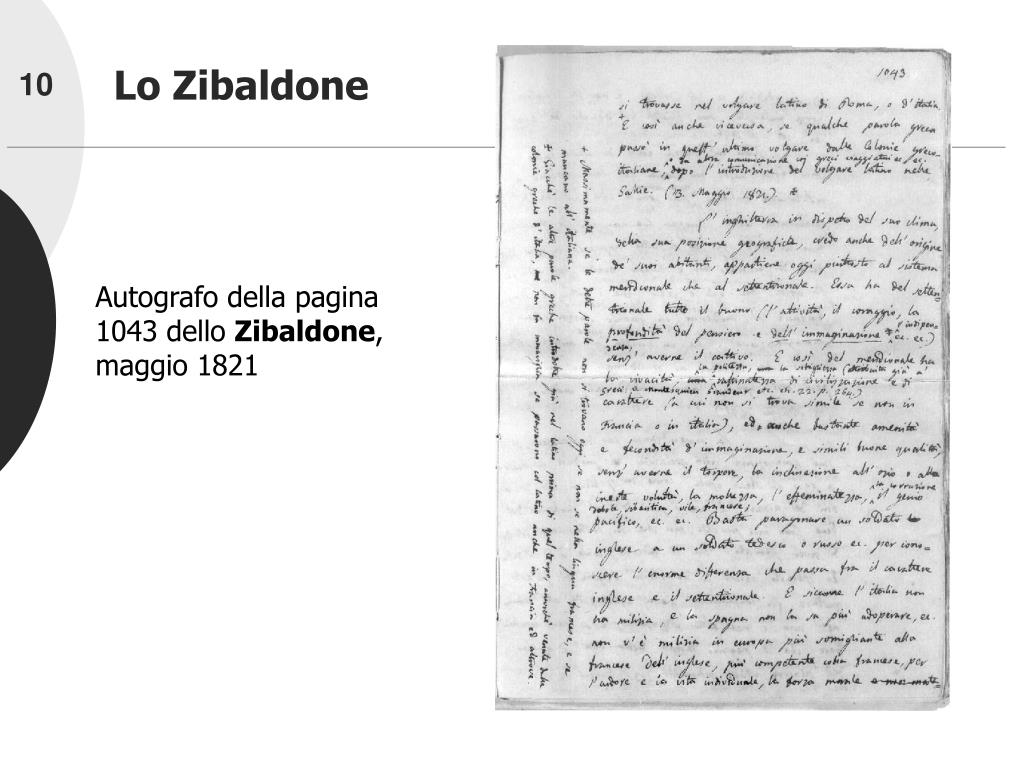 10
Lo Zibaldone
Autografo della pagina
1043 dello Zibaldone,
maggio 1821
1043
si trovasse nel volgare latino di Roma, o d'italia.
E così anche viceversa, se qualche parola greca
passò in quest'ultimo volgare dalle Colonie greco-
o da altra comunicazione coi greci viaggiatori ec. ec.
italiane, dopo l'introduzione del volgare latino nelle
Gallie. (13. Maggio 1821.) +
L'inghilterra in dispetto del suo clima
della sua posizione geografica, credo anche dell'origine
de' suoi abitanti, appartiene oggi piuttosto al sistema
meridionale che al settentrionale. Essa ha del setten-
trionale tutto il buono (l'attività, il coraggio, la
profondità del pensiero e dell'immaginazione, ec. ec.)
l'indipen-
denza,
senz'averne il cattivo. E così del meridionale ha
la politezza, la sottigliezza (attribuita già a'
la vivacità, raffinatezza di civilizzazione e di
greci
carattere (a cui non si trova simile se non in
Francia o in italia), ed anche bastante amenità
e fecondità d'immaginazione, e simili buone qualità,
senz'averne il torpore, la inclinazione all'ozio o alla
la corruzione
inerte voluttà, la mollezza, l'effeminatezza, il genio
debole, sibaritico, vile, francese;
pacifico, ec. ec. Basta paragonare un soldato
inglese a un soldato tedesco o russo ec. per cono-
scere l'enorme differenza che passa fra il carattere
inglese e il settentrionale. E siccome l'italia non
ha milizia, e la spagna non la sa più adoperare, ec.
non v'è milizia in europa più somigliante alla
francese dell'inglese, più competente colla francese, per
l'ardore e la vita individuale, la forza morale
+ Massimamente se le dette parole non si trovano oggi se non se nella lingua francese, e se
mancano all'italiana.
+ Giacchè le altre parole greche introdotte già nel latino prima di quel tempo, ancorchè venute dalle
colonie greche d'italia, non fa maraviglia se passarono col latino anche in Francia ed altrove.